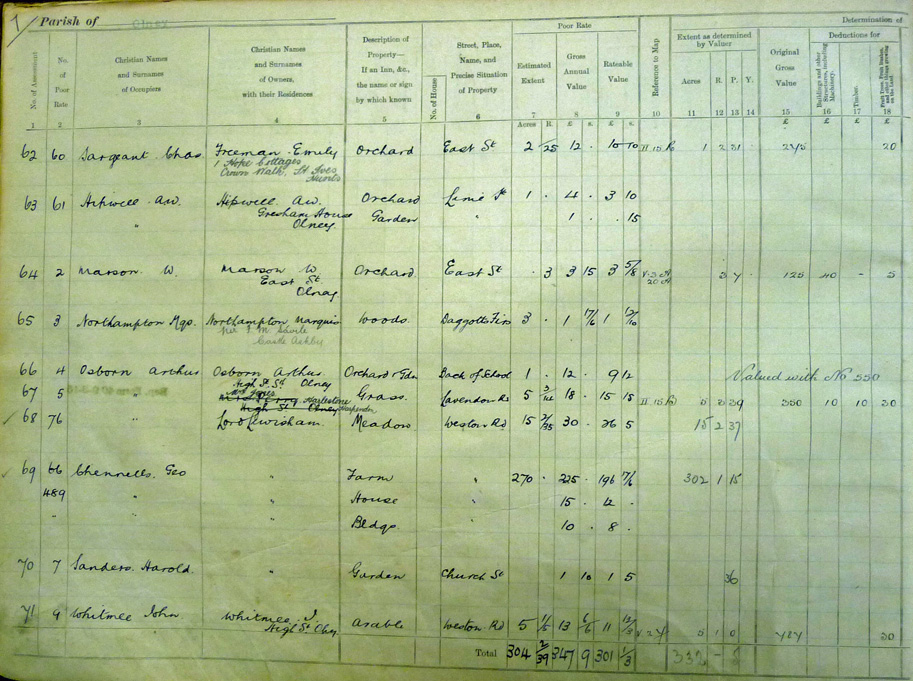 7 Parish of Olney
Determination of
Poor Rate
No. of Assessment
No. of Poor Rate
Christian Names and Surnames of Occupiers
Christian Names and Surnames of Owners, with their Residences
Description of Property— If an Inn, &c., the name or sign by which known
No. of House
Street, Place, Name, and Precise Situation of Property
Estimated Extent
Gross Annual Value
Rateable Value
Reference to Map
Extent as determined by Valuer
Original Gross Value
Deductions for
Buildings and other Structures, including Machinery.
Timber.
Acres R. P. Y.
1 2 3 4 5 6 7 8 9 10 11 12 13 14 15 16 17 18
Acres R. £ s. £ s. £ £ £ £
62 60 Sargeant Chas Freeman Emily Orchard East St 2 /25 12 . 10 10 1 2 245 20
1 Hope Cottages
Crown Walk, St Ives
Hunts
63 61 Hipwell AW. Hipwell AW. Orchard Lime St 1 . 4 . 3 10
" Gresham House Garden " 1 . 15
Olney.
64 2 Marson W. Marson W Orchard East St . 3 3 15 3 5/8 3 7 125 40 - 5
East St
Olney.
65 3 Northampton Mqs. Northampton Marquis Woods. Baggotts Firs 3 . 1 17/6 1 12/10
Castle Ashby
66 4 Osborn Arthur Osborn Arthur Orchard & Gdn Back of School 1 . 12 . 9 12 Valued with No 550
High St Sth Olney
67 5 " Grass. Lavendon Rd 5 18 . 15 15 39 350 10 10 30
High St Olney
68 76 " Lord Lewisham. Meadow Weston Rd 15 2/35 30 . 26 5 15 2 37
69 66 Chennells, Geo " Farm " 270 . 225 . 196 17/6 302 1 15
489 " " House " 15 . 12 .
" " Bldgs 10 . 8 .
70 7 Sanders. Harold. " Garden Church St 1 10 1 5 36
71 9 Whitmee John Whitmee J. Arable Weston Rd 5 1/5 13 6/6 11 5 1 0 30
High St Olney
Total 304 2/39 347 9 301 1/3 332 -